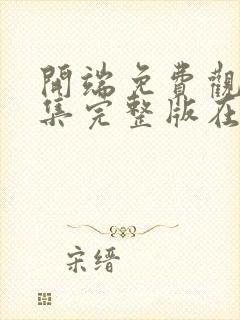 開端免費觀
集完整版在
宋缙